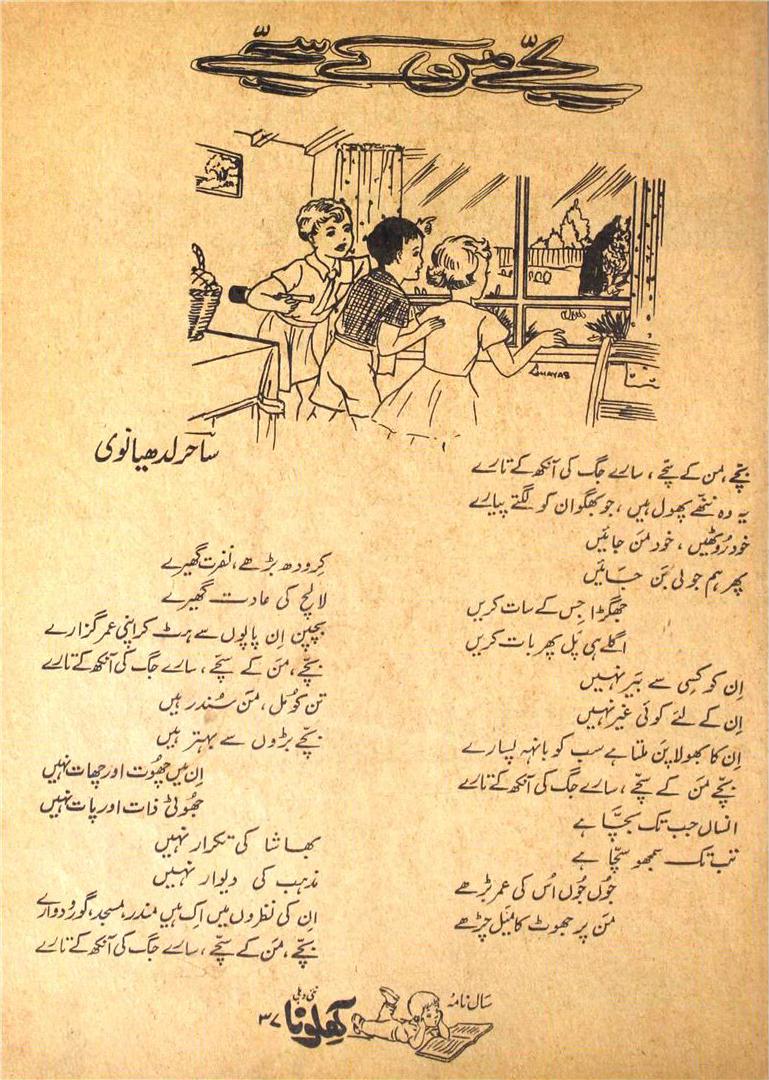 بچّے من کے سچّے
SHAYAB
ساحر لدھیانوی
بچّے، من کے سچّے، سارے جگ کی آنکھ کے تارے
یہ وہ ننھّے پھول ہیں، جو بھگوان کو لگتے پیارے
خود رُوٹھیں، خود مَن جائیں
پھر ہم جولی بَن جائیں
جھگڑا جِس کے سات کریں
اگلے ہی پَل پھر بات کریں
اِن کو کِسی سے بَیر نہیں
اِن کے لئے کوئی غیر نہیں
اِن کا بھولا پن ملتا ہے سب کو بانہہ پسارے
بچّے مَن کے سچّے، سارے جگ کی آنکھ کے تارے
انساں جب تک بچّا ہے
تب تک سمجھو سچّا ہے
جُوں جُوں اُس کی عمر بڑھے
مَن پر جھوٹ کا مَیل چڑھے
کرودھ بڑھے، نفرت گھیرے
لالچ کی عادت گھیرے
بچپن اِن پاپوں سے ہٹ کر اپنی عمر گزارے
بچّے، مَن کے سچّے، سارے جگ کی آنکھ کے تارے
تن کومل، مَن سُندر ہیں
بچّے بڑوں سے بہتر ہیں
اِن میں چھُوت اور چھات نہیں
جھُوٹی ذات اور پات نہیں
بھاشا کی تکرار نہیں
مذہب کی دیوار نہیں
اِن کی نظروں میں اِک ہیں مندر، مسجد، گوردوارے
بچّے، مَن کے سچّے، سارے جگ کی آنکھ کے تارے
سال نامہ
کھلونا نئی دہلی ۳۷